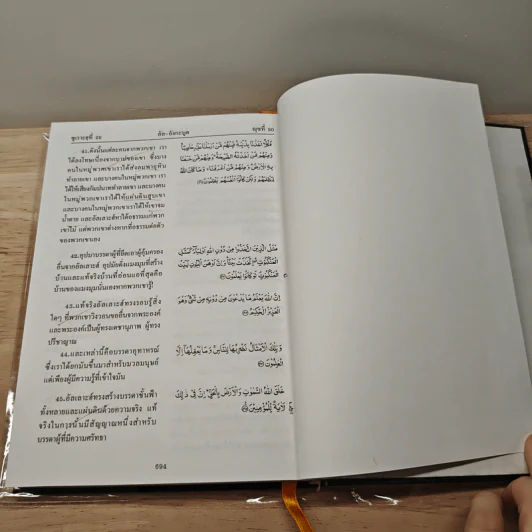 ซูเราะฮฺที่ 29 อัล-อังกะบูต ญุซที่ 20
41.ดังนั้นแต่ละคนจากพวกเขา เรา
ได้ลงโทษเนื่องจาก
คนในหมู่พวกเขาเราได้ส่งลมพายุหิน
ทำลายเขา และบางคนในหมู่พวกเขา เรา
ได้ให้เสียงกัมปนาททำลายเขา และบางคน
ในหมู่พวกเขาเราได้ให้แผ่นดินสูบเขา
และบางคนในหมู่พวกเขาเราได้ให้เขาจม
น้ำตาย และอัลเลาะฮ์หาได้อธรรมแก่พวก
เขาไม่ แต่พวกเขาต่างหากที่อธรรมต่อตัว
ของพวกเขาเอง
อุปมาบรรดาผู้ที่ยึดเอาผู้คุ้มครอง
อื่นจากอัลเลาะฮ์ อุปมัยดังแมงมุมที่สร้าง
บ้านและแท้จริงบ้านที่อ่อนแอที่สุดคือ
บ้านของแมงมุมนั่นเองหากพวกเขารู้!
แท้จริงอัลเลาะฮ์ทรงรอบรู้สิ่ง
ใดๆ ที่พวกเขาวิงวอนขออื่นจากพระองค์
และพระองค์เป็นผู้ทรงเดชานุภาพ ผู้ทรง
ปรีชาญาณ
44.และเหล่านี้คือบรรดาอุทาหรณ์
ซึ่งเราได้ยกมันขึ้นมาสำหรับมวลมนุษย์
แต่เพียงผู้มีความรู้ที่เข้าใจมัน
45.อัลเลาะฮ์ทรงสร้างบรรดาชั้นฟ้า
ทั้งหลายและแผ่นดินด้วยความจริง แท้
จริงในการนั้นมีสัญญาณหนึ่งสำหรับ
บรรดาผู้ที่มีความศรัทธา
فَكُلًّا أَخَذْنَا بِذَنْبِهِ فَمِنْهُمْ مَنْ أَرْسَلْنَا عَلَيْهِ حَاصِبًا
وَمِنْهُمْ مَنْ أَخَذَتْهُ الصَّيْحَةُ وَمِنْهُمْ مَنْ خَسَفْنَا
بِهِ الْأَرْضَ وَمِنْهُمْ مَنْ أَغْرَقْنَا وَمَا كَانَ اللهُ
لِيَظْلِمَهُمْ وَلَكِنْ كَانُوا أَنْفُسَهُمْ يَظْلِمُونَ
مَثَلُ الَّذِينَ اتَّخَذُوا مِنْ دُونِ اللهِ أَوْلِيَاءَ كَمَثَلِ
الْعَنْكَبُوتِ اتَّخَذَتْ بَيْتًا وَإِنَّ أَوْهَنَ الْبُيُوتِ لَبَيْتُ
الْعَنْكَبُوتِ لَوْ كَانُوا يَعْلَمُونَ
إِنَّ اللهَ يَعْلَمُ مَا يَدْعُونَ مِنْ دُونِهِ مِنْ شَيْءٍ وَهُوَ
الْعَزِيزُ الْحَكِيمُ
وَتِلْكَ الْأَمْثَالُ نَضْرِبُهَا لِلنَّاسِ وَمَا يَعْقِلُهَا إِلَّا
الْعَالِمُونَ
خَلَقَ اللهُ السَّمَوَاتِ وَالْأَرْضَ بِالْحَقِّ إِنَّ فِي ذَلِكَ
لَآيَةً لِلْمُؤْمِنِينَ
594